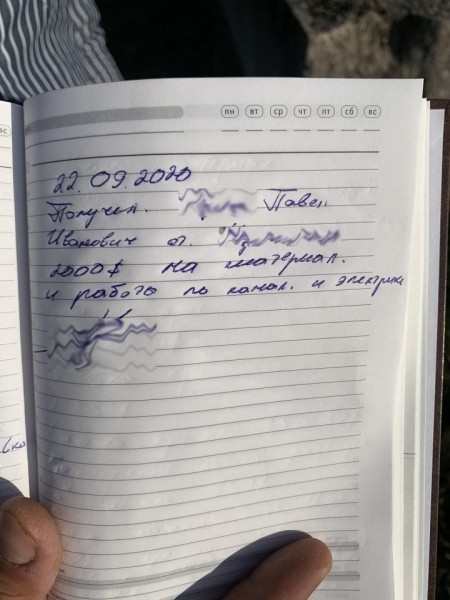 пн вт ср чт пт сб вс
22.09.2020
Получил. Павел
Иванович от.
2000$ на материал.
и работы по канал. и электрике